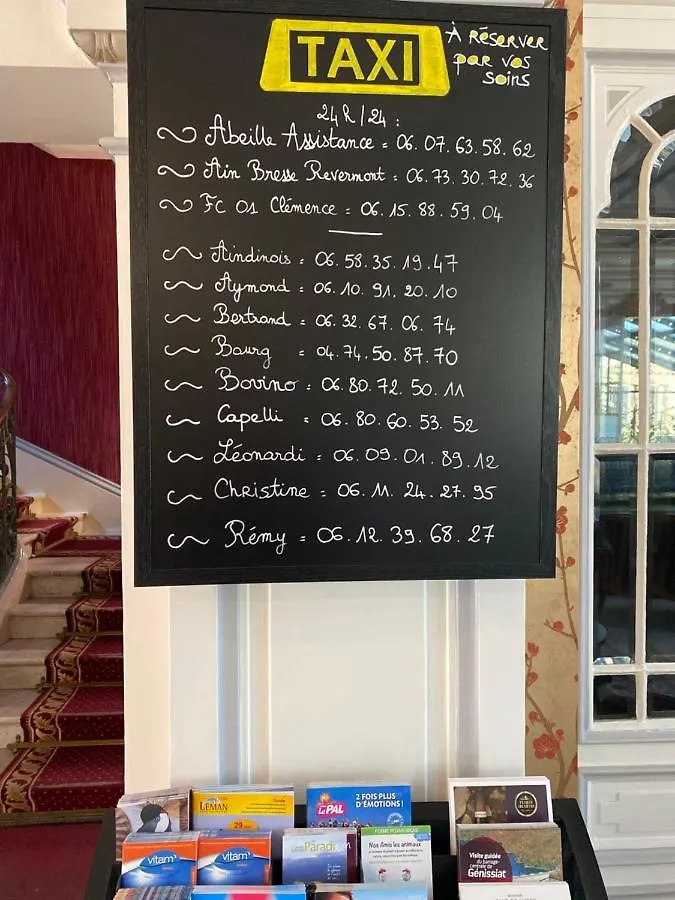 TAXI
À RéSERVER
par vos
soins
24h/24 :
Abeille Assistance = 06.07.63.58.62
Ain Bresse Revermont = 06.73.30.72.36
FC 01 Clémence = 06.15.88.59.04
Aindinois = 06.58.35.19.47
Aymond = 06.10.91.20.10
Bertrand = 06.32.67.06.74
Bourg = 04.74.50.87.70
Bovino = 06.80.72.50.11
Capelli = 06.80.60.53.52
Léonardi = 06.09.01.89.12
Christine = 06.11.24.27.95
Rémy = 06.12.39.68.27
LÉMAN
Le PAL
2 FOIS PLUS
D'ÉMOTIONS !
vitam'
vitam'
Paradi
Nos Amis les animaux
Visite guidée
du barrage
Génissiat